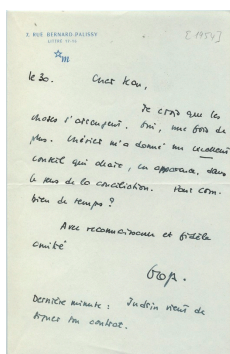 7, RUE BERNARD-PALISSY
[1954]
m
le 30.
Cher
Je crois que les
choses s'arrangent. Oui, une fois de
plus, m'a donné un excellent
conseil qui allait, en apparence, dans
le sens de la conciliation. Pour com-
bien de temps ?
Avec reconnaissance et fidèle
amitié
Dernière minute : vient de
signer son contrat.